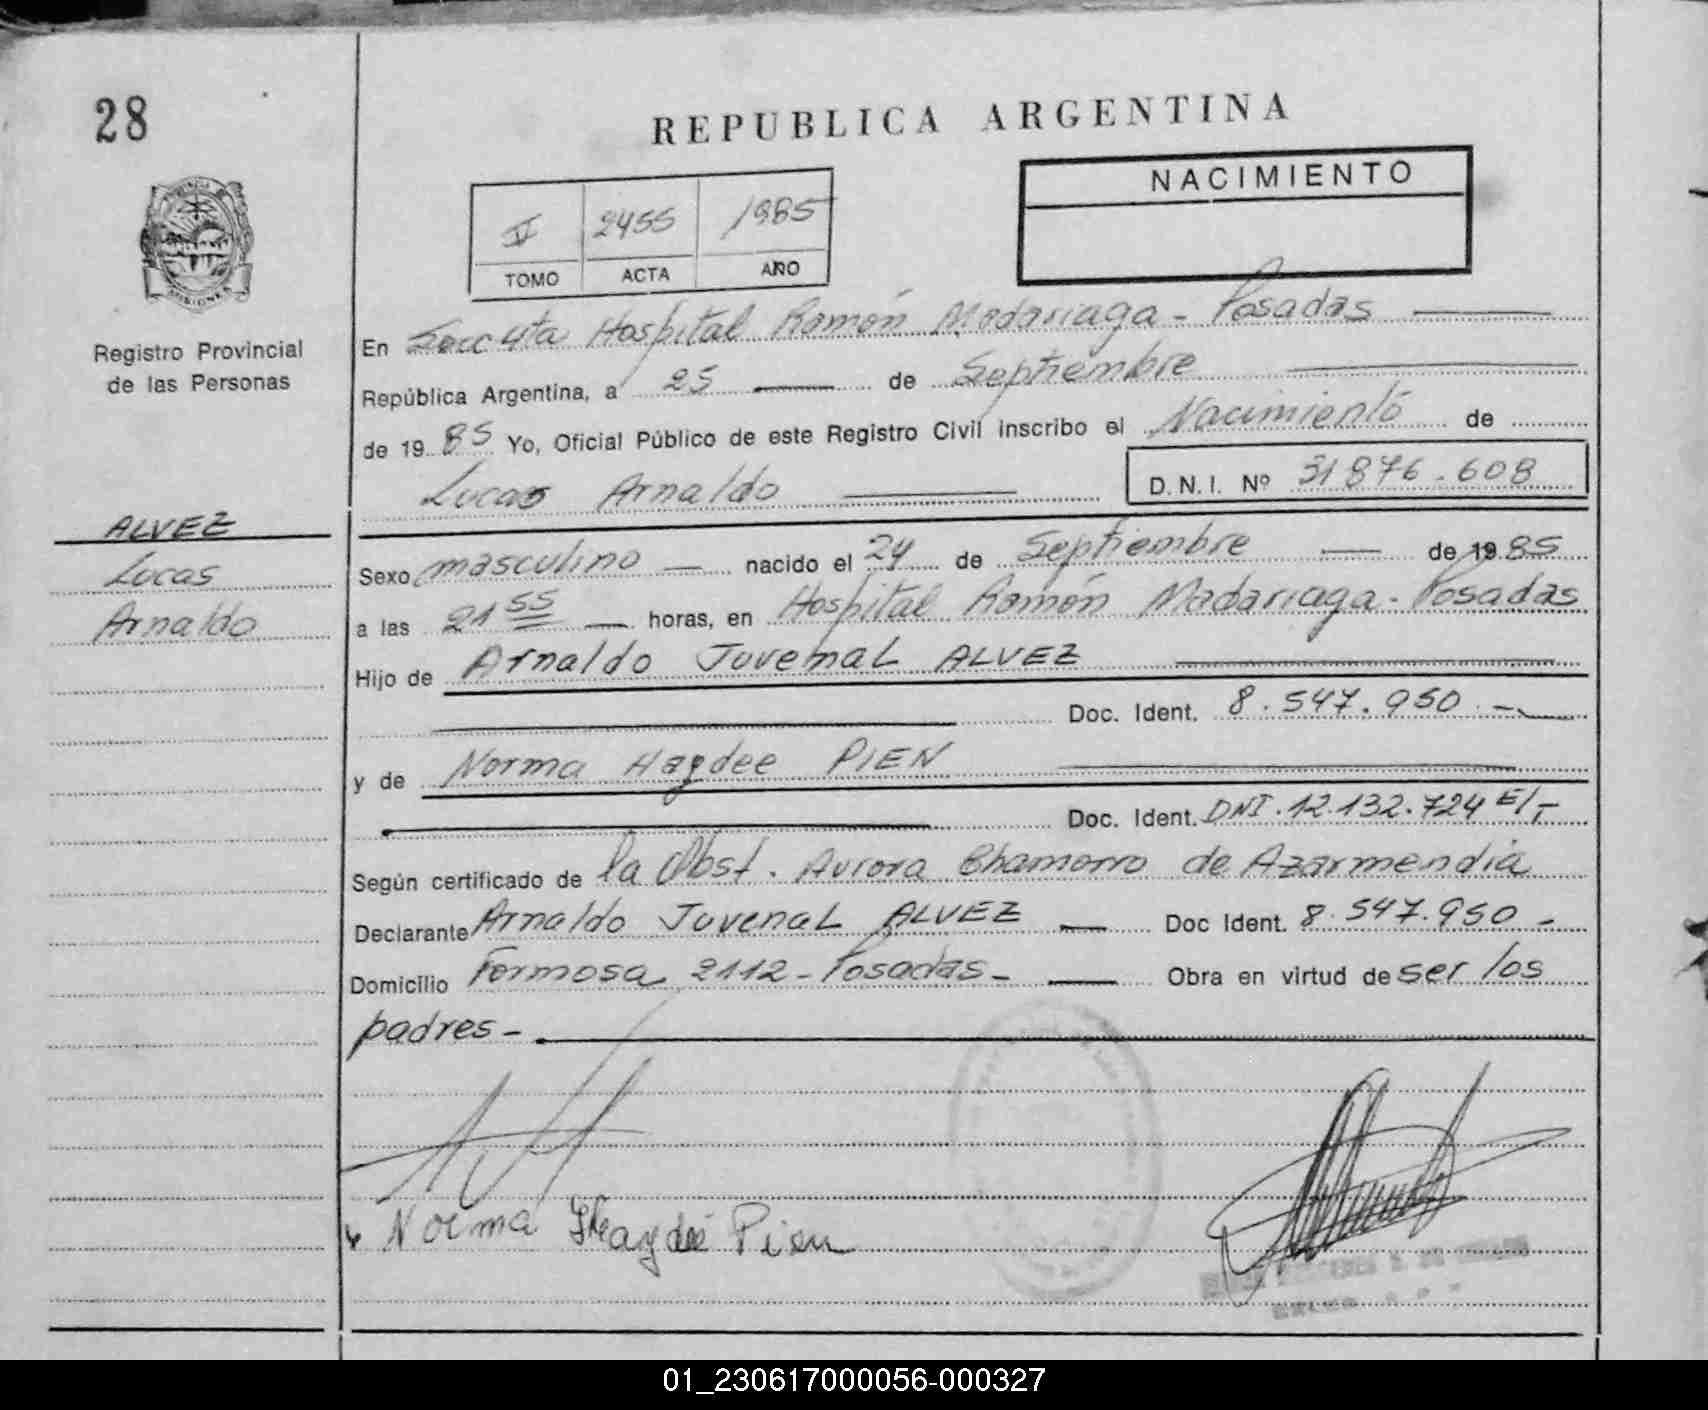 28
REPUBLICA ARGENTINA
NACIMIENTO
V 2455 1985
TOMO ACTA AÑO
Registro Provincial
de las Personas
En Secc 4ta Hospital Ramón Madariaga - Posadas
República Argentina, a 25 de Septiembre
de 1985 Yo, Oficial Público de este Registro Civil inscribo el Nacimiento de
Lucas Arnaldo D.N.I. Nº 31876.608
ALVEZ
Lucas
Arnaldo
Sexo masculino nacido el 24 de Septiembre de 1985
a las 21 55 horas, en Hospital Ramón Madariaga - Posadas
Hijo de Arnaldo Juvenal ALVEZ
Doc. Ident. 8.547.950.-
y de Norma Haydee PIEN
Doc. Ident. DNI.12.132.724 E/-
Según certificado de la Obst. Aurora Chamorro de Azarmendia
Declarante Arnaldo Juvenal ALVEZ Doc Ident. 8.547.950 -
Domicilio Formosa 2112 - Posadas - Obra en virtud de ser los
padres -
Norma Haydeé Pien
01_230617000056-000327